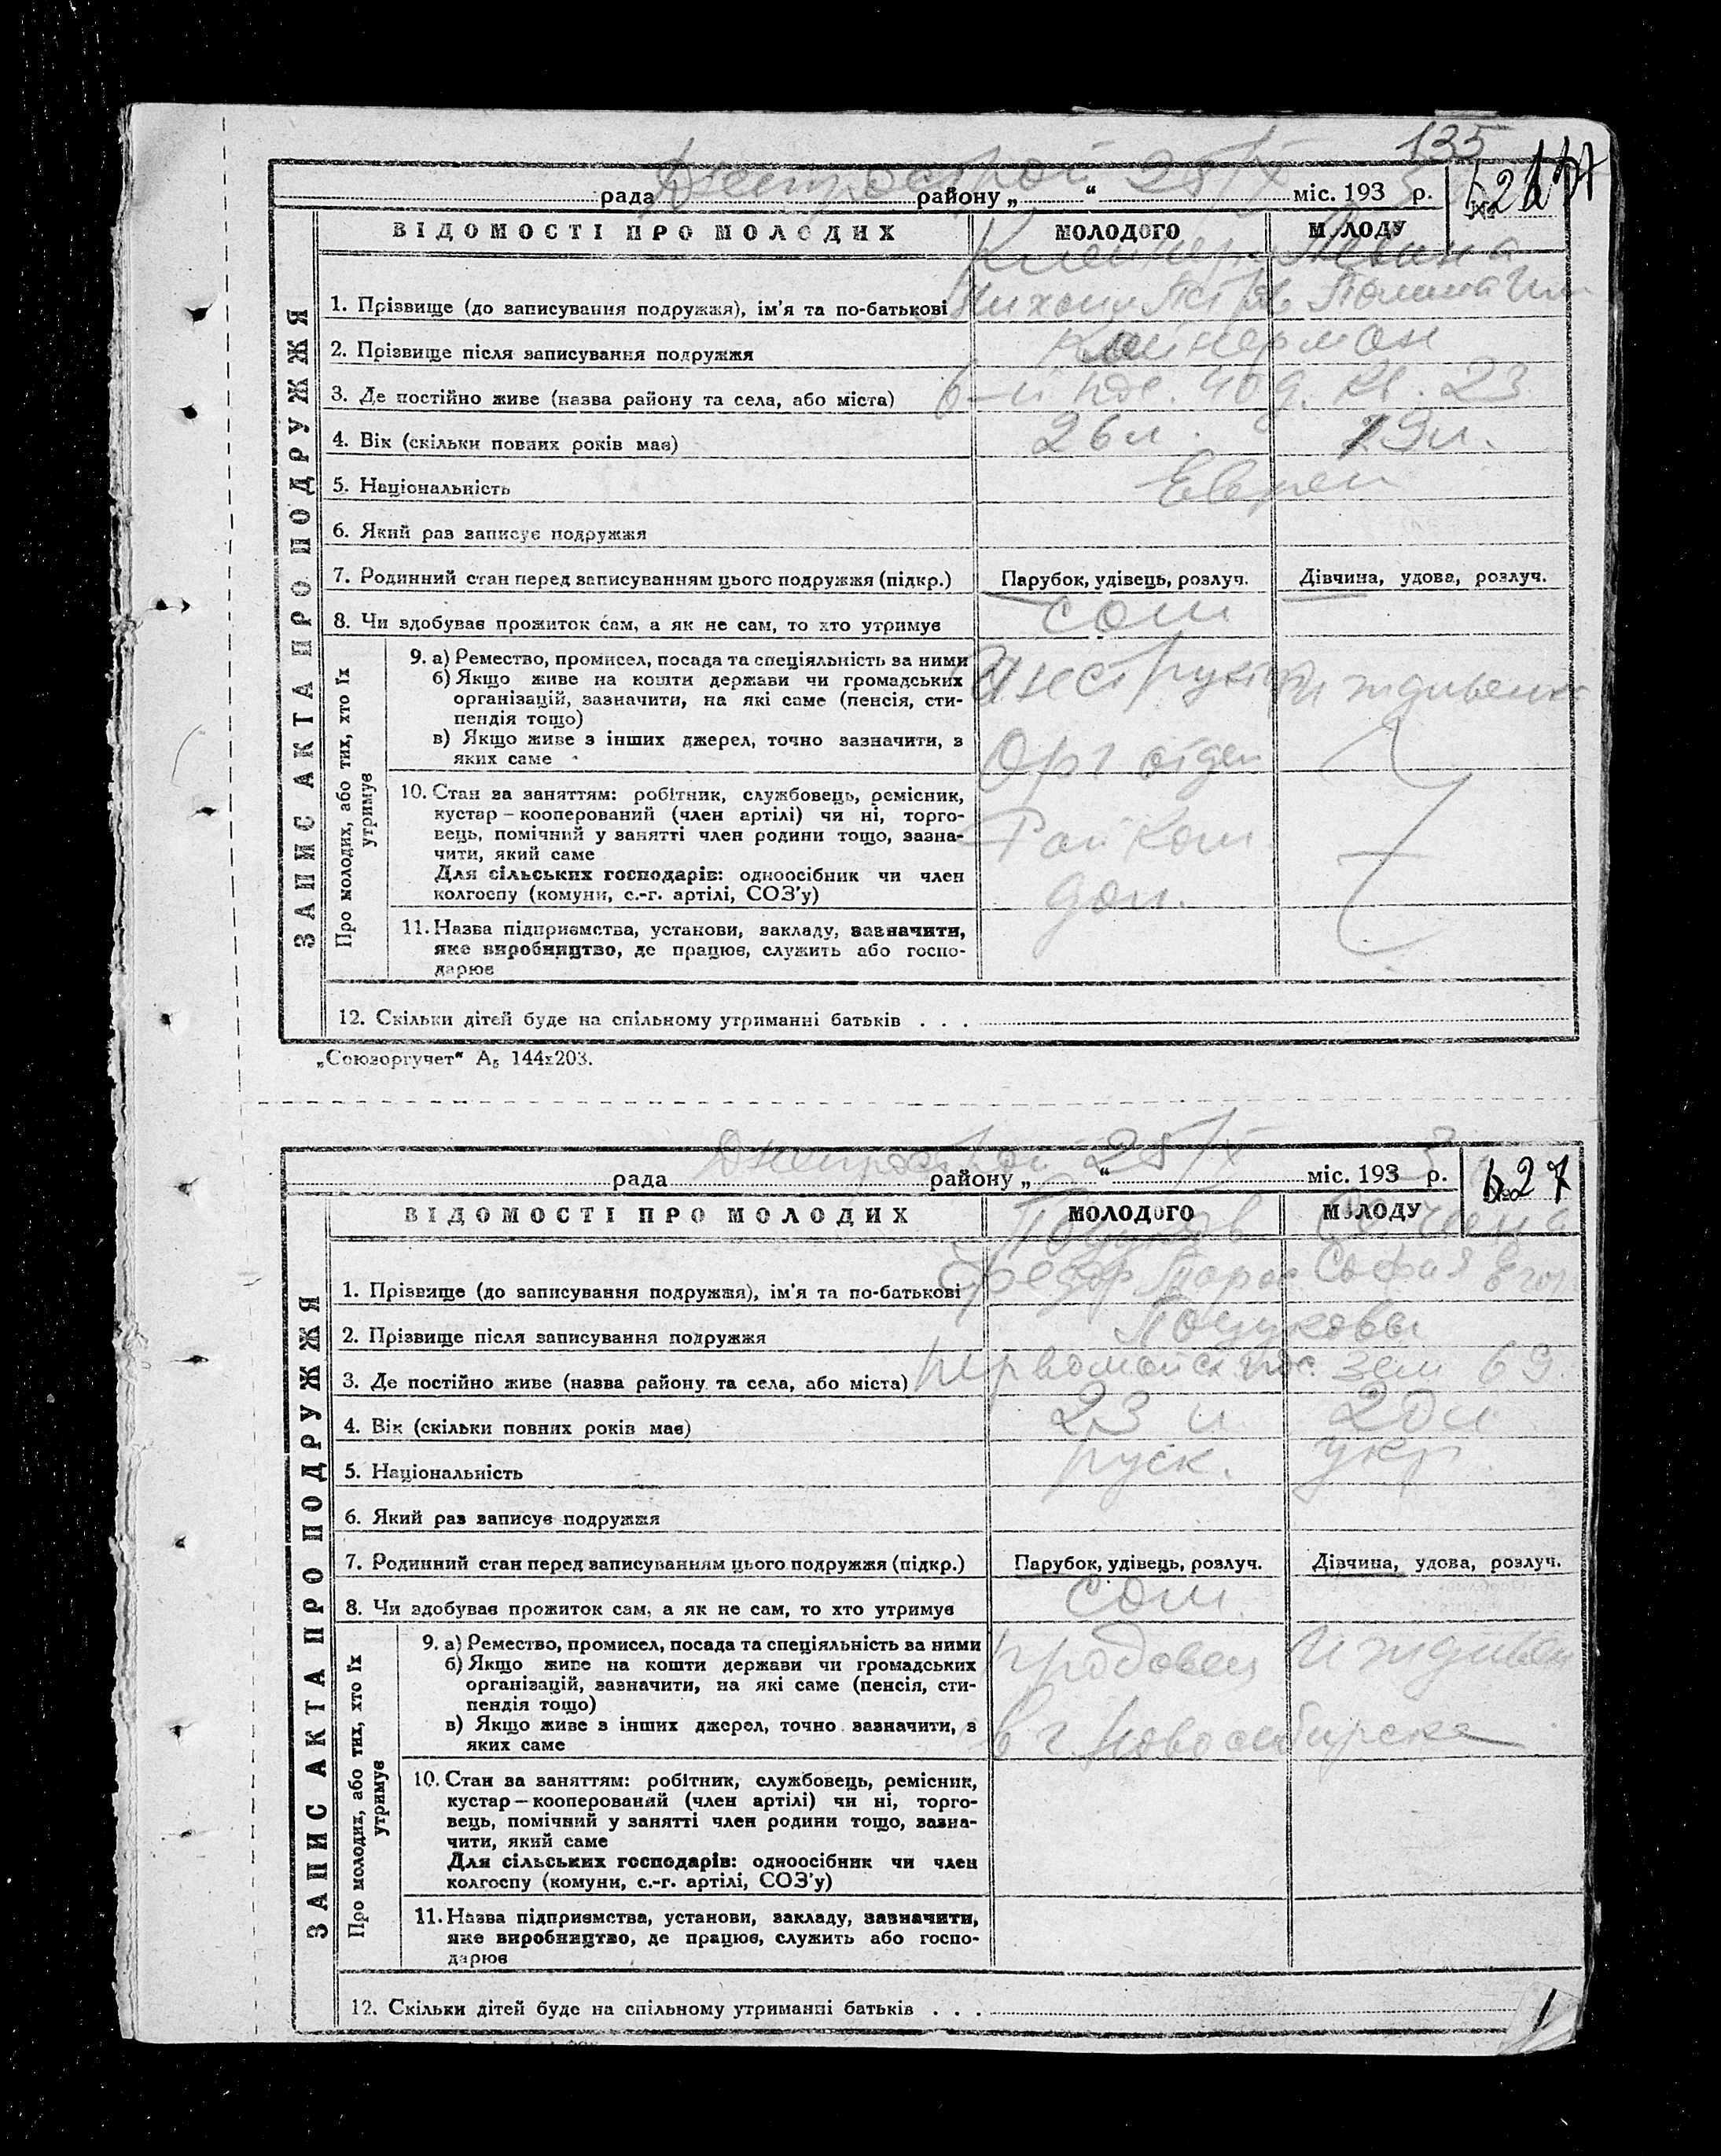 135
Днепрострой 25/IX
рада района „ “ міс. 193 р. № 626
ВІДОМОСТІ ПРО МОЛОДИХ МОЛОДОГО МОЛОДУ
1. Прізвище (до записування подружжя), ім'я та по-батькові
2. Прізвище після записування подружжя
3. Де постійно живе (назва району та села, або міста) 6-й пос. 40 д. кв. 23
4. Вік (скільки повних років має) 26 л. 29 л.
5. Національність Евреи
6. Який раз записує подружжя
7. Родинний стан перед записуванням цього подружжя (підкр.) Парубок, удівець, розлуч. Дівчина, удова, розлуч.
8. Чи здобуває прожиток сам, а як не сам, то хто утримує сам
ЗАПИС АКТА ПРО ПОДРУЖЖЯ
Про молодих, або тих, хто їх утримує
9. а) Ремество, промисел, посада та спеціяльність за ними
б) Якщо живе на кошти держави чи громадських
організацій, зазначити, на які саме (пенсія, сти-
пендія тощо)
в) Якщо живе з інших джерел, точно зазначити, з
яких саме
Инструкт Иждивенка
Орг отдел
10. Стан за заняттям: робітник, службовець, ремісник,
кустар – кооперований (член артілі) чи ні, торго-
вець, помічний у занятті член родини тощо, зазна-
чити, який саме
Для сільських господарів: одноосібник чи член
колгоспу (комуни, с.-г. артілі, СОЗ'у)
Рай Ком
11. Назва підприємства, установи, закладу, зазначити,
яке виробництво, де працює, служить або госпо-
дарює
12. Скільки дітей буде на спільному утриманні батьків . . .
„Союзоргучет“ А₅ 144х203.
Днепрострой 25/IX 3
рада району „ “ міс. 193 р. № 627
ВІДОМОСТІ ПРО МОЛОДИХ МОЛОДОГО МОЛОДУ
1. Прізвище (до записування подружжя), ім'я та по-батькові Федор Софья Егор
2. Прізвище після записування подружжя
3. Де постійно живе (назва району та села, або міста) первомайск. пос. зем 69
4. Вік (скільки повних років має) 23 л. 20 л
5. Національність руск. укр.
6. Який раз записує подружжя
7. Родинний стан перед записуванням цього подружжя (підкр.) Парубок, удівець, розлуч. Дівчина, удова, розлуч.
8. Чи здобуває прожиток сам, а як не сам, то хто утримує сам
ЗАПИС АКТА ПРО ПОДРУЖЖЯ
Про молодих, або тих, хто їх утримує
9. а) Ремество, промисел, посада та спеціяльність за ними
б) Якщо живе на кошти держави чи громадських
організацій, зазначити, на які саме (пенсія, сти-
пендія тощо)
в) Якщо живе з інших джерел, точно зазначити, з
яких саме
продавец Иждивен
в г. Новосибирске
10. Стан за заняттям: робітник, службовець, ремісник,
кустар – кооперований (член артілі) чи ні, торго-
вець, помічний у занятті член родини тощо, зазна-
чити, який саме
Для сільських господарів: одноосібник чи член
колгоспу (комуни, с.-г. артілі, СОЗ'у)
11. Назва підприємства, установи, закладу, зазначити,
яке виробництво, де працює, служить або госпо-
дарює
12. Скільки дітей буде на спільному утриманні батьків . . .
1